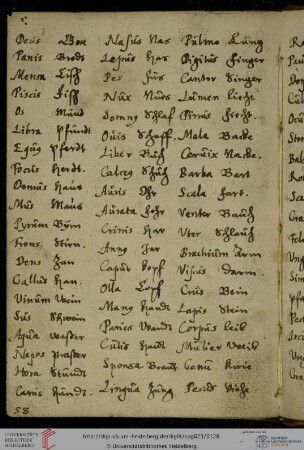 Deus Gott
Panis Brodt
Mensa Tisch
Piscis Fisch
Os Mundt
Libra Pfundt
Equs Pferdt
Focus herdt.
Domus Haus
Mus Maus
Pyrum Byrn
Frons Stirn.
Dens Zan
Gallus Han.
Vinum Wein
Sus Schwein
Aqua Wasser
Negos
Hora Stundt
Canis Hundt.
Nasus Nas
Lepus Has
Pes Fus
Nux Nuss
Somny Schlaf
Ovis Schaff.
Liber Buch
Calceg Schuh
Auris Ohr
Aurata
Crinis Har
Anng Jar
Caput Kopf
Olla Topf
Mang Handt
Paries Wandt
Cutis Haudt
Sponsa Braudt
Lingua Zung
Pulmo Lung
Digitus Finger
Cantor Singer
Lumen Licht
Mala Backe
Cervix Nacke.
Barba Bart
Scala
Venter Bauch
Uter Schlauch
Brachium Arm
Darm.
Crus Bein
Lapis Stein
Corpus Leib
Mulier Weib
Genu Knie
Pecus Viehe
58
UNIVERSITÄTS-
BIBLIOTHEK
HEIDELBERG
http://digi.ub.uni-heidelberg.de/diglit/cpg623/0128
© Universitätsbibliothek Heidelberg